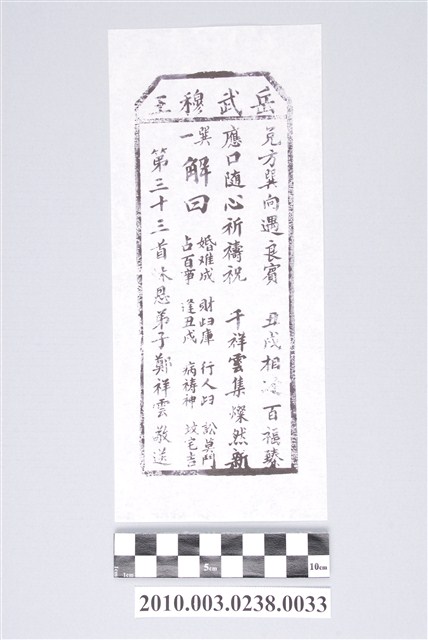 岳武穆王
兌方巽向遇良賓 丑戌相逢百福臻
應口隨心祈禱祝 千祥雲集燦然新
巽一
解曰
婚难成 財归庫 行人归 訟莫鬥
占百事 逢丑戌 病禱神 攻宅吉
第三十三首沐恩弟子鄭祥雲敬送
1cm
5cm
10cm
2010.003.0238.0033